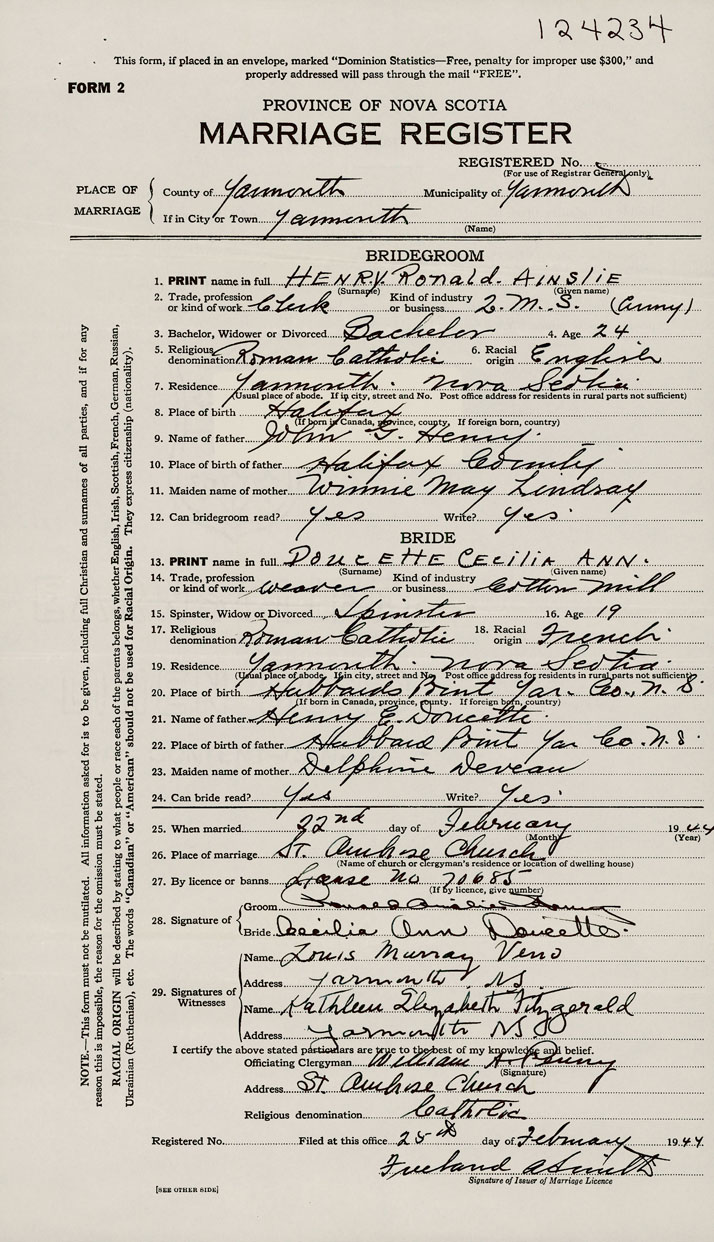 124234
This form, if placed in an envelope, marked "Dominion Statistics—Free, penalty for improper use $300," and
properly addressed will pass through the mail "FREE".
FORM 2
PROVINCE OF NOVA SCOTIA
MARRIAGE REGISTER
REGISTERED No.
(For use of Registrar General only)
PLACE OF MARRIAGE
County of Yarmouth Municipality of Yarmouth
If in City or Town Yarmouth
(Name)
BRIDEGROOM
1. PRINT name in full HENRY. Ronald. AINSLIE
(Surname) (Given name)
2. Trade, profession or kind of work Clerk Kind of industry or business 2. M. S. (Army)
3. Bachelor, Widower or Divorced Bachelor 4. Age 24
5. Religious denomination Roman Catholic 6. Racial origin English
7. Residence Yarmouth. Nova Scotia
(Usual place of abode. If in city, street and No. Post office address for residents in rural parts not sufficient)
8. Place of birth Halifax
(If born in Canada, province, county. If foreign born, country)
9. Name of father John G. Henry.
10. Place of birth of father Halifax County
11. Maiden name of mother Winnie May Lindsay
12. Can bridegroom read? yes Write? yes
BRIDE
13. PRINT name in full DOUCETTE CECILIA ANN.
(Surname) (Given name)
14. Trade, profession or kind of work weaver Kind of industry or business Cotton mill
15. Spinster, Widow or Divorced Spinster 16. Age 19
17. Religious denomination Roman Catholic 18. Racial origin French
19. Residence Yarmouth. Nova Scotia.
(Usual place of abode. If in city, street and No. Post office address for residents in rural parts not sufficient)
20. Place of birth Hubbards Point Yar. Co., N. S.
(If born in Canada, province, county. If foreign born, country)
21. Name of father Henry E. Doucette.
22. Place of birth of father Hubbard Point Yar Co. N. S.
23. Maiden name of mother Delphine Deveau
24. Can bride read? Yes Write? Yes
25. When married 22nd day of February 1944
(Month) (Year)
26. Place of marriage St. Ambrose Church
(Name of church or clergyman's residence or location of dwelling house)
27. By licence or banns License No 70685
(If by licence, give number)
28. Signature of
Groom Ronald Ainslie Henry
Bride Cecilia Ann Doucette.
29. Signatures of Witnesses
Name Louis Murray Veno
Address Yarmouth NS
Name Kathleen Elizabeth Fitzgerald
Address Yarmouth NS
I certify the above stated particulars are true to the best of my knowledge and belief.
Officiating Clergyman William A. Penny
(Signature)
Address St. Ambrose Church
Religious denomination Catholic
Registered No. Filed at this office 25th day of February 1944.
Freeland A Smith
Signature of Issuer of Marriage Licence
[SEE OTHER SIDE]
NOTE.—This form must not be mutilated. All information asked for is to be given, including full Christian and surnames of all parties, and if for any
reason this is impossible, the reason for the omission must be stated.
RACIAL ORIGIN will be described by stating to what people or race each of the parents belongs, whether English, Irish, Scottish, French, German, Russian,
Ukrainian (Ruthenian), etc. The words "Canadian" or "American" should not be used for Racial Origin. They express citizenship (nationality).